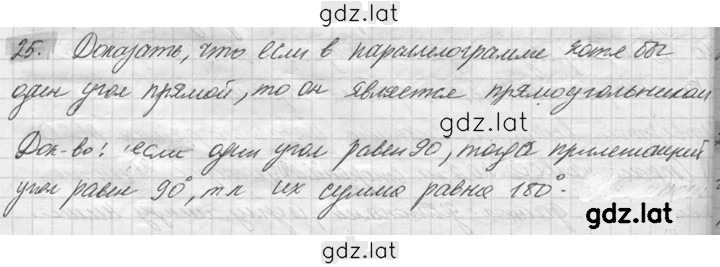 gdz.lat
25. Доказать, что если в параллелограмме хотя бы
один угол прямой, то он является прямоугольником
gdz.lat
Док-во: если один угол равен 90, тогда прилежащий
угол равен 90°, т к их сумма равна 180°.
gdz.lat
gdz.lat